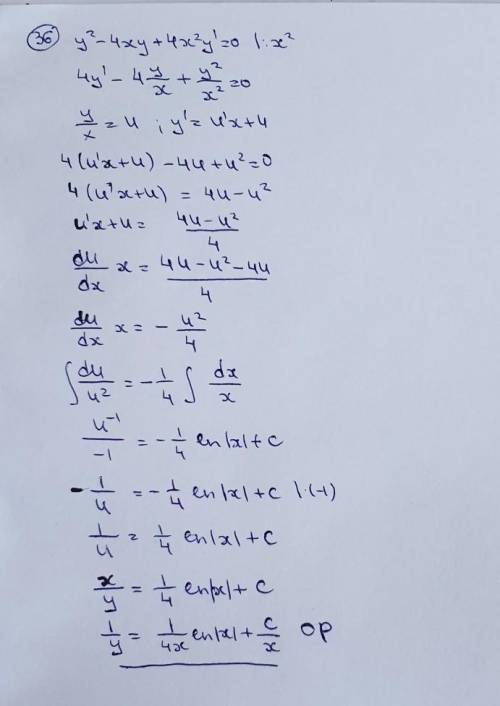 36 y² - 4xy + 4x²y' = 0 |: x²
4y' - 4 y/x + y²/x² = 0
y/x = u ; y' = u'x + u
4(u'x + u) - 4u + u² = 0
4(u'x + u) = 4u - u²
u'x + u = (4u - u²)/4
du/dx x = (4u - u² - 4u)/4
du/dx x = - u²/4
∫ du/u² = - 1/4 ∫ dx/x
u⁻¹/-1 = - 1/4 ln|x| + c
- 1/u = - 1/4 ln|x| + c |·(-1)
1/u = 1/4 ln|x| + c
x/y = 1/4 ln|x| + c
1/y = 1/4x ln|x| + c/x OP